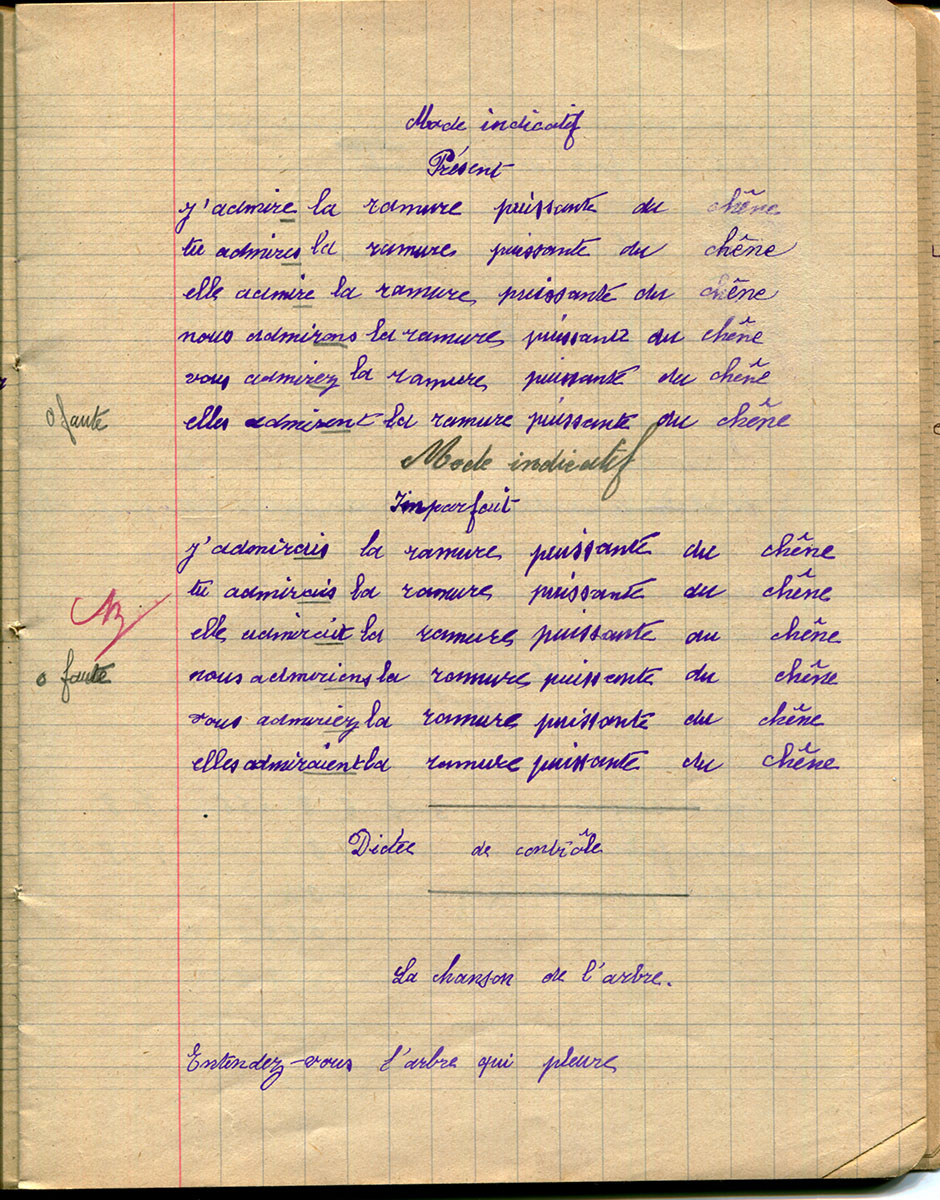 Mode indicatif
Présent
j'admire la ramure puissante du chêne
tu admires la ramure puissante du chêne
elle admire la ramure puissante du chêne
nous admirons la ramure puissante du chêne
vous admirez la ramure puissante du chêne
0 faute
elles admirent la ramure puissante du chêne
Mode indicatif
Imparfait
j'admirais la ramure puissante du chêne
tu admirais la ramure puissante du chêne
elle admirait la ramure puissante du chêne
0 faute
nous admirions la ramure puissante du chêne
vous admiriez la ramure puissante du chêne
elles admiraient la ramure puissante du chêne
Dictée de contrôle
La chanson de l'arbre.
Entendez-vous l'arbre qui pleure